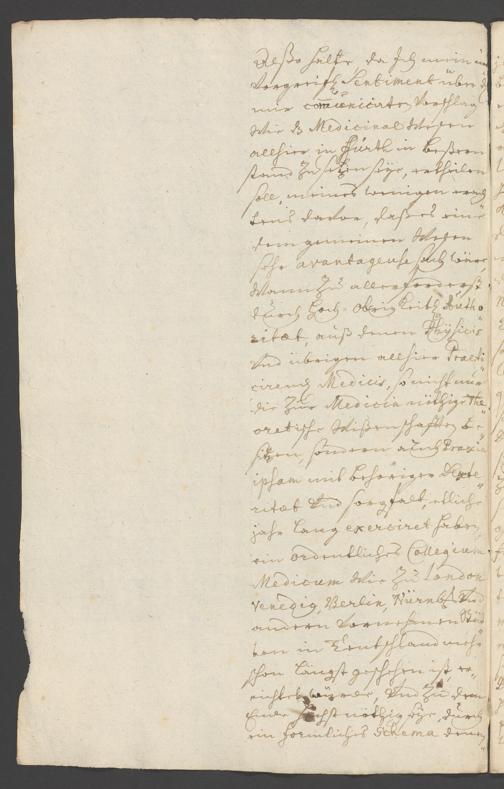 Alßo halte, da Ich mein
Vorgereich Sentiment über d
mir comunicirten Vorschlag
Wie ds Medicinal Wesen
allhier in Fürth in beßern
stand zu setzen seye, ertheilen
soll, meines wenigen erach
tens davor, daß es eine
dem gemeinen Wesen
sehr avantageuse sach wäre
Wann zu allerforderist
durch Hoch-Obrigkeitl. Autho
ritæt, auß denen Physicis
und übrigen allhier Practi
cirend Medicis, so nicht nur
die zur Medicin nöthige The
oretische Wißenschafften be
sitzen, sondern auch Praxin
ipsam mit behöriger Dexte
ritæt und sorgfalt, etliche
jahr lang exerciret haben,
ein ordentliches Collegium
Medicum wie zu London
Venedig, Berlin, Nürnbg und
andern vornehmen Stä
ten in Teutschland
schon längst geschehen ist, er
richtet würde, und zu dem
Ende höchst nöthig seye, durch
ein förmliches Schema denen